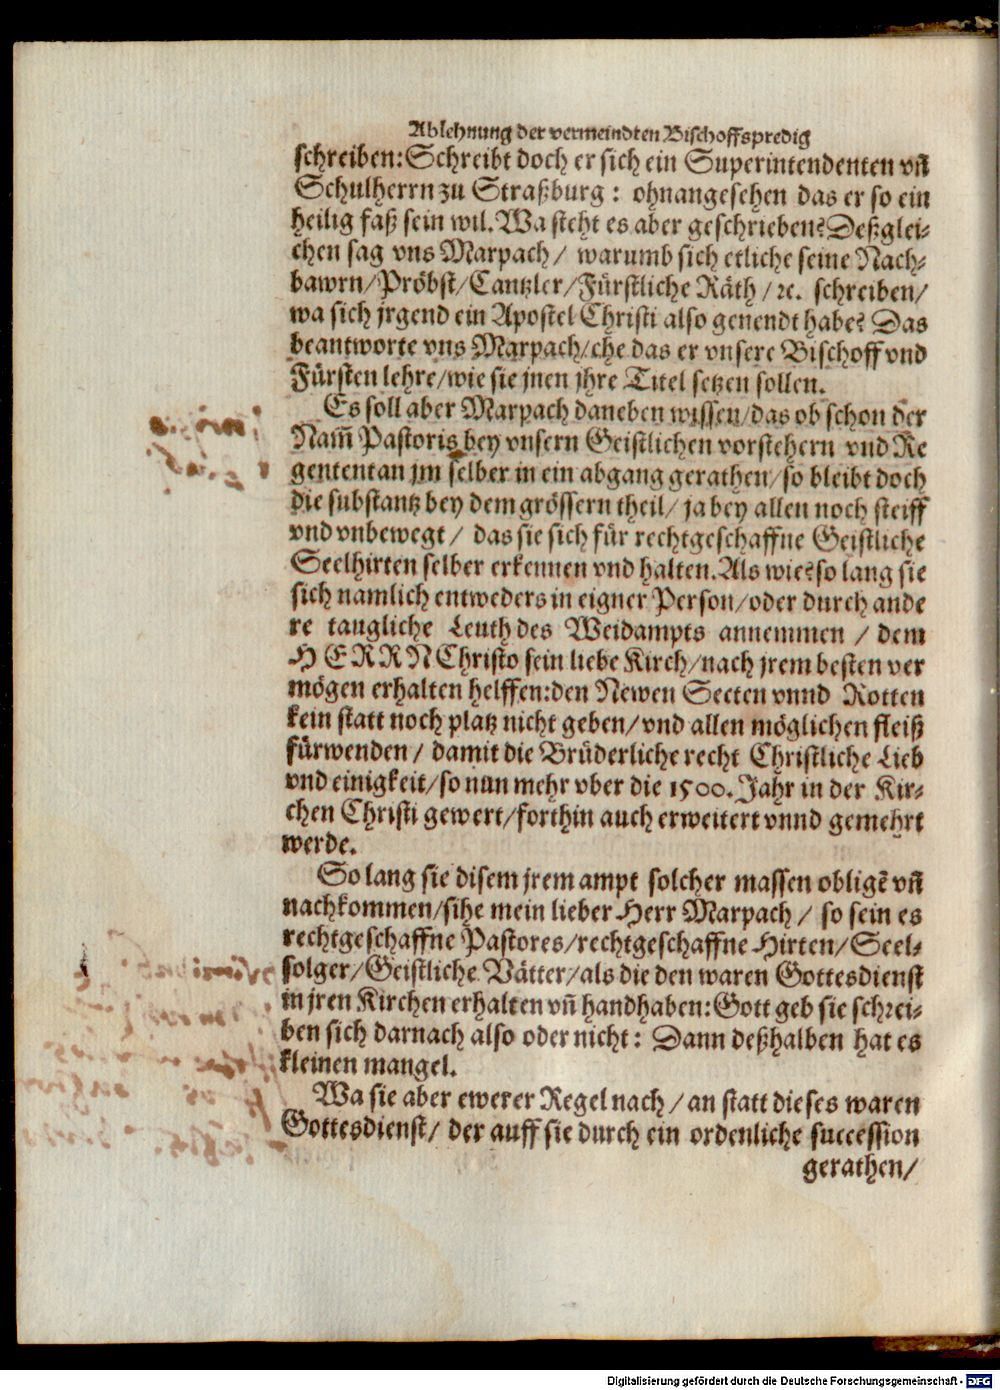 Ablehnung der vermeindten Bischoffspredig
schreiben: Schreibt doch er sich ein Superintendenten vñ
Schulherrn zu Straßburg: ohnangesehen das er so ein
heilig faß sein wil. Wa steht es aber geschrieben? Deßglei-
chen sag vns Marpach/ warumb sich etliche seine Nach-
bawrn/ Pröbst/ Cantzler/ Fürstliche Räth/ ꝛc. schreiben/
wa sich jrgend ein Apostel Christi also genendt habe? Das
beantworte vns Marpach/ ehe das er vnsere Bischoff vnd
Fürsten lehre/ wie sie jnen jhre Titel setzen sollen.
Es soll aber Marpach daneben wissen/ das ob schon der
Nam̃ Pastoris bey vnsern Geistlichen vorstehern vnd Re
gentent an jm selber in ein abgang gerathen/ so bleibt doch
die substantz bey dem grössern theil/ ja bey allen noch steiff
vnd vnbewegt/ das sie sich für rechtgeschaffne Geistliche
Seelhirten selber erkennen vnd halten. Als wie? so lang sie
sich namlich entweders in eigner Person/ oder durch ande
re taugliche Leuth des Weidampts annemmen/ dem
HERRN Christo sein liebe Kirch/ nach jrem besten ver
mögen erhalten helffen: den Newen Secten vnnd Rotten
kein statt noch platz nicht geben/ vnd allen möglichen fleiß
fürwenden/ damit die Brüderliche recht Christliche Lieb
vnd einigkeit/ so nun mehr vber die 1500. Jahr in der Kir-
chen Christi gewert/ forthin auch erweitert vnnd gemehrt
werde.
So lang sie disem jrem ampt solcher massen obligẽ vñ
nachkommen/ sihe mein lieber Herr Marpach/ so sein es
rechtgeschaffne Pastores/ rechtgeschaffne Hirten/ Seel-
solger/ Geistliche Vätter/ als die den waren Gottesdienst
in jren Kirchen erhalten vñ handhaben: Gott geb sie schrei-
ben sich darnach also oder nicht: Dann deßhalben hat es
kleinen mangel.
Wa sie aber ewerer Regel nach/ an statt dieses waren
Gottesdienst/ der auff sie durch ein ordenliche succession
gerathen/
Digitalisierung gefördert durch die Deutsche Forschungsgemeinschaft - DFG